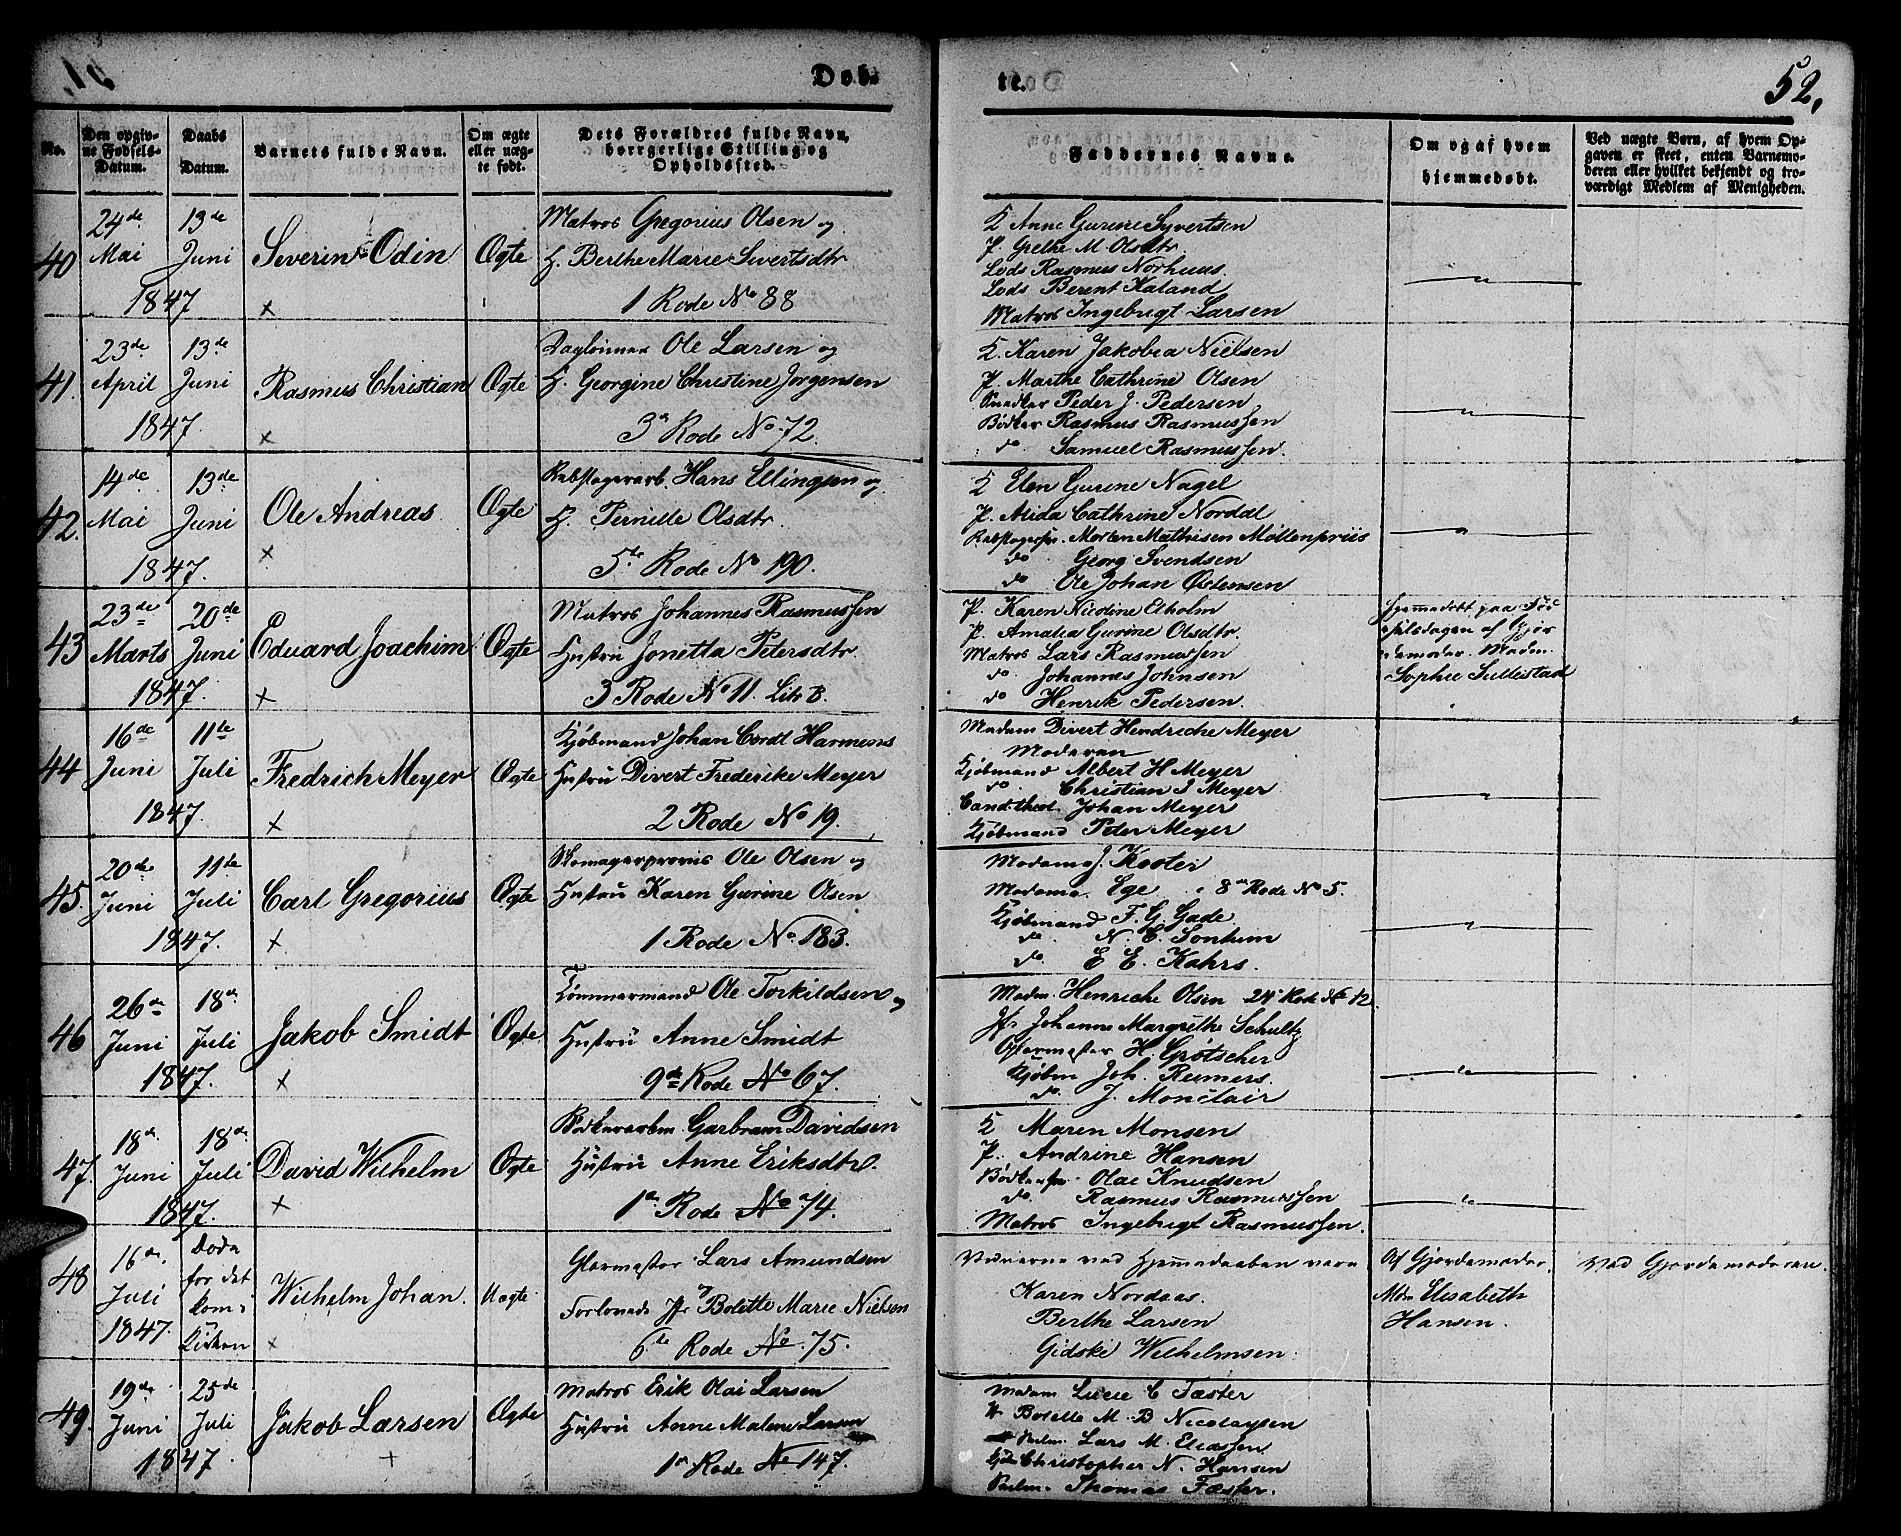 Døb-
te.
52,
No.
Den opgiv-
ne Fødsels-
Datum.
Daabs
Datum.
Barnets fulde Navn.
Om ægte
eller uæg-
te født.
Dets Forældres fulde Navn,
borgerlige Stilling og
Opholdssted.
Faddernes Navne.
Om og af hvem
hjemmedøbt.
Ved uægte Børn, af hvem Op-
gaven er skeet, enten Barnemo-
deren eller hvilket bekjendt og tro-
værdigt Medlem af Menigheden.
40
24de
Mai
1847
13de
Juni
Severin Odin
×
Ægte
Matros Gregorius Olsen og
H. Berthe Marie Sivertsdtr
1 Rode No 88
K Anne Gurine Syvertsen
P. Grethe M. Olsdtr
Lods Rasmus Norhuus.
Lods Berent Kaland
Matros Ingebrigt Larsen
"
41.
23de
April
1847.
13de
Juni
Rasmus Christian
×
Ægte
Dagleinner Ole Larsen og
H. Georgine Christine Jorgensen
3die Rode No 72.
K. Karen Jakobia Nielsen
P. Marthe Cathrine Olsen
Snedker Peder J. Pedersen
Bødker Rasmus Rasmussen
do Samuel Rasmussen.
"
42.
14de
Mai
1847.
13de
Juni
Ole Andreas
×
Ægte
Rebslagerarb. Hans Ellingsen og
H. Pernille Olsdtr.
5te Rode No 190.
K Elen Gurine Nagel
P. Alida Cathrine Norddl
Rebslagersv. Morten Mathisen Møllenpriis
do Georg Svendsen
do Ole Johan Østensen
"
43
23de
Marts
1847.
20de
Juni
Eduard Joachim
×
Ægte
Matros Johannes Rasmussen
Hustru Jonetta Petersdtr
3 Rode No 11. Litr B.
P. Karen Nicoline Elholm
P. Amalia Gurine Olsdtr.
Matros Lars Rasmussen
do. Johannes Johnsen
do Henrik Pedersen.
Hjemmedøbt paa Fød
selsdagen af Gjor
demoder Madm.
Sophie Sullestad
44
16de
Juni
1847.
11te
Juli
Fredrich Meyer
×
Ægte
Kjøbmand Johan Cordt Harmens
Hustru Divert Frederike Meyer
2 Rode No 19.
Madam Divert Hendriche Meyer
Moderen
Kjøbmand Albert H Meyer
do. Christian J Meyer
Cand. theol. Johan Meyer
Kjøbmand Peter Meyer
"
45.
20de
Juni
1847.
11te
Juli
Carl Gregorius
×
Ægte
Skomagerprovis Ole Olsen og
Hustru Karen Gurine Olsen
1 Rode No. 183.
Madame J. Koster
Madame Ege 8de Rode No 5.
Kjøbmand F. G. Gade
do. N. C. Sontum
do E E. Kahrs.
"
46
26de
Juni
1847.
18de
Juli
Jakob Smidt
×
Ægte
Tømmermand Ole Torkildsen og
Hustru Anne Smidt
9de Rode No 67.
Madm. Henriche Olsen 24 Rode No 12
Jfr Johanne Margrethe Schultz
H. Grøtscher
Kjøbm Joh. Reimers.
do. J. Monclair
"
47.
18de
Juni
1847.
18de
Juli
David Wilhelm
×
Ægte
Bødkerarbm. Garbram Davidsen
Hustru Anne Eriksdtr.
1ste Rode No 74.
K Maren Monsen
P. Andrine Hansen
Bødkersv. Olai Knudsen
do. Rasmus Rasmussen
Matros Ingebrigt Rasmussen.
"
48
16de.
Juli
1847.
Døde
før det
kom i
Kirken
Wilhelm Johan.
×
Uægte
Glarmester Lars Amundsen
og
Forlovede Jfr Bolette Marie Nielsen
6te Rode No. 75.
Vidnerne ved Hjemmedaaben vare
Karen Nordaas.
Berthe Larsen
Gidske Wilhelmsen.
Af Gjordemoder
Mdm Elisabeth
Hansen.
Ved Gjordemoderen.
49.
19de
Juni
1847.
25de
Juli
Jakob Larsen
×
Ægte
Matros Erik Olai Larsen
Hustru Anne Malene Larsen
1ste Rode No 147.
Madam Lucie C Fæster
Bolette M. B Nicolaysen
Lars M. Eliassen
Christopher N. Hansen
Thomas Fæster.